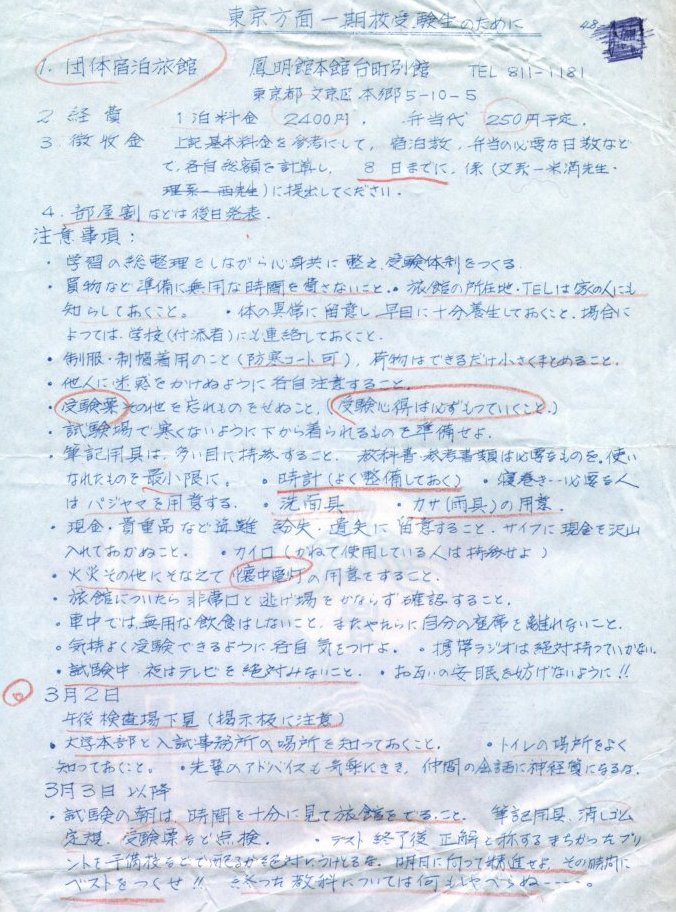 東京方面一期校受験生のために
48
1. 団体宿泊旅館　鳳明館本館台町別館　TEL 811-1181
東京都文京区本郷5-10-5
2 経費　1泊料金 2400円. 弁当代 250円予定.
3 徴収金　上記基本料金を参考にして, 宿泊数, 弁当の必要な日数など
で, 各自総額を計算し, 8日までに, 係(文系-米満先生・
理系-西先生)に提出してください.
4. 部屋割などは後日発表.
注意事項:
・学習の総整理をしながら心身共に整え, 受験体制をつくる.
・買物など準備に無用な時間を費さないこと.・旅館の所在地・TELは家の人にも
知らしておくこと。・体の異常に留意し, 早目に十分養生しておくこと. 場合に
よっては, 学校(付添者)にも連絡しておくこと.
・制服・制帽着用のこと(防寒コート可), 荷物はできるだけ小さくまとめること.
・他人に迷惑をかけぬように各自注意すること.
・受験票その他を忘れものをせぬこと, (受験心得は必ずもっていくこと.)
・試験場で寒くないように下から着られるものを準備せよ.
・筆記用具は, 多い目に持参すること. 教科書・参考書類は必要なものを. 使い
なれたものを最小限に。・時計(よく整備しておく)・寝巻き…必要な人
はパジャマを用意する.・洗面具・カサ(雨具)の用意.
・現金・貴重品など盗難 紛失・遺失に留意すること. サイフに現金を沢山
入れておかぬこと.・カイロ(かねて使用している人は持参せよ)
・火災その他にそなえて懐中電灯の用意をすること.
・旅館についたら非常口と逃げ場をかならず確認すること.
・車中では無用な飲食はしないこと, またやたらに自分の座席を離れないこと.
・気持よく受験できるように各自気をつけよ.・携帯ラジオは絶対持っていかない.
・試験中 夜はテレビを絶対みないこと.・お互いの安眠を妨げないように!!
3月2日
午後検査場下見(掲示板に注意)
・大学本部と入試事務所の場所を知っておくこと.・トイレの場所をよく
知っておくこと。・先輩のアドバイスも気楽にきき, 仲間の会話に神経質になるな.
3月3日以降
・試験の朝は, 時間を十分に見て旅館をでること. 筆記用具, 消しゴム
定規, 受験票など点検.・テスト終了後 正解と称するまちがったプリ
ントを予備校などで配るが絶対にうけとるな. 明日に向って精進せよ. その時間に
ベストをつくせ!! 終った教科については何もしゃべらぬ----。